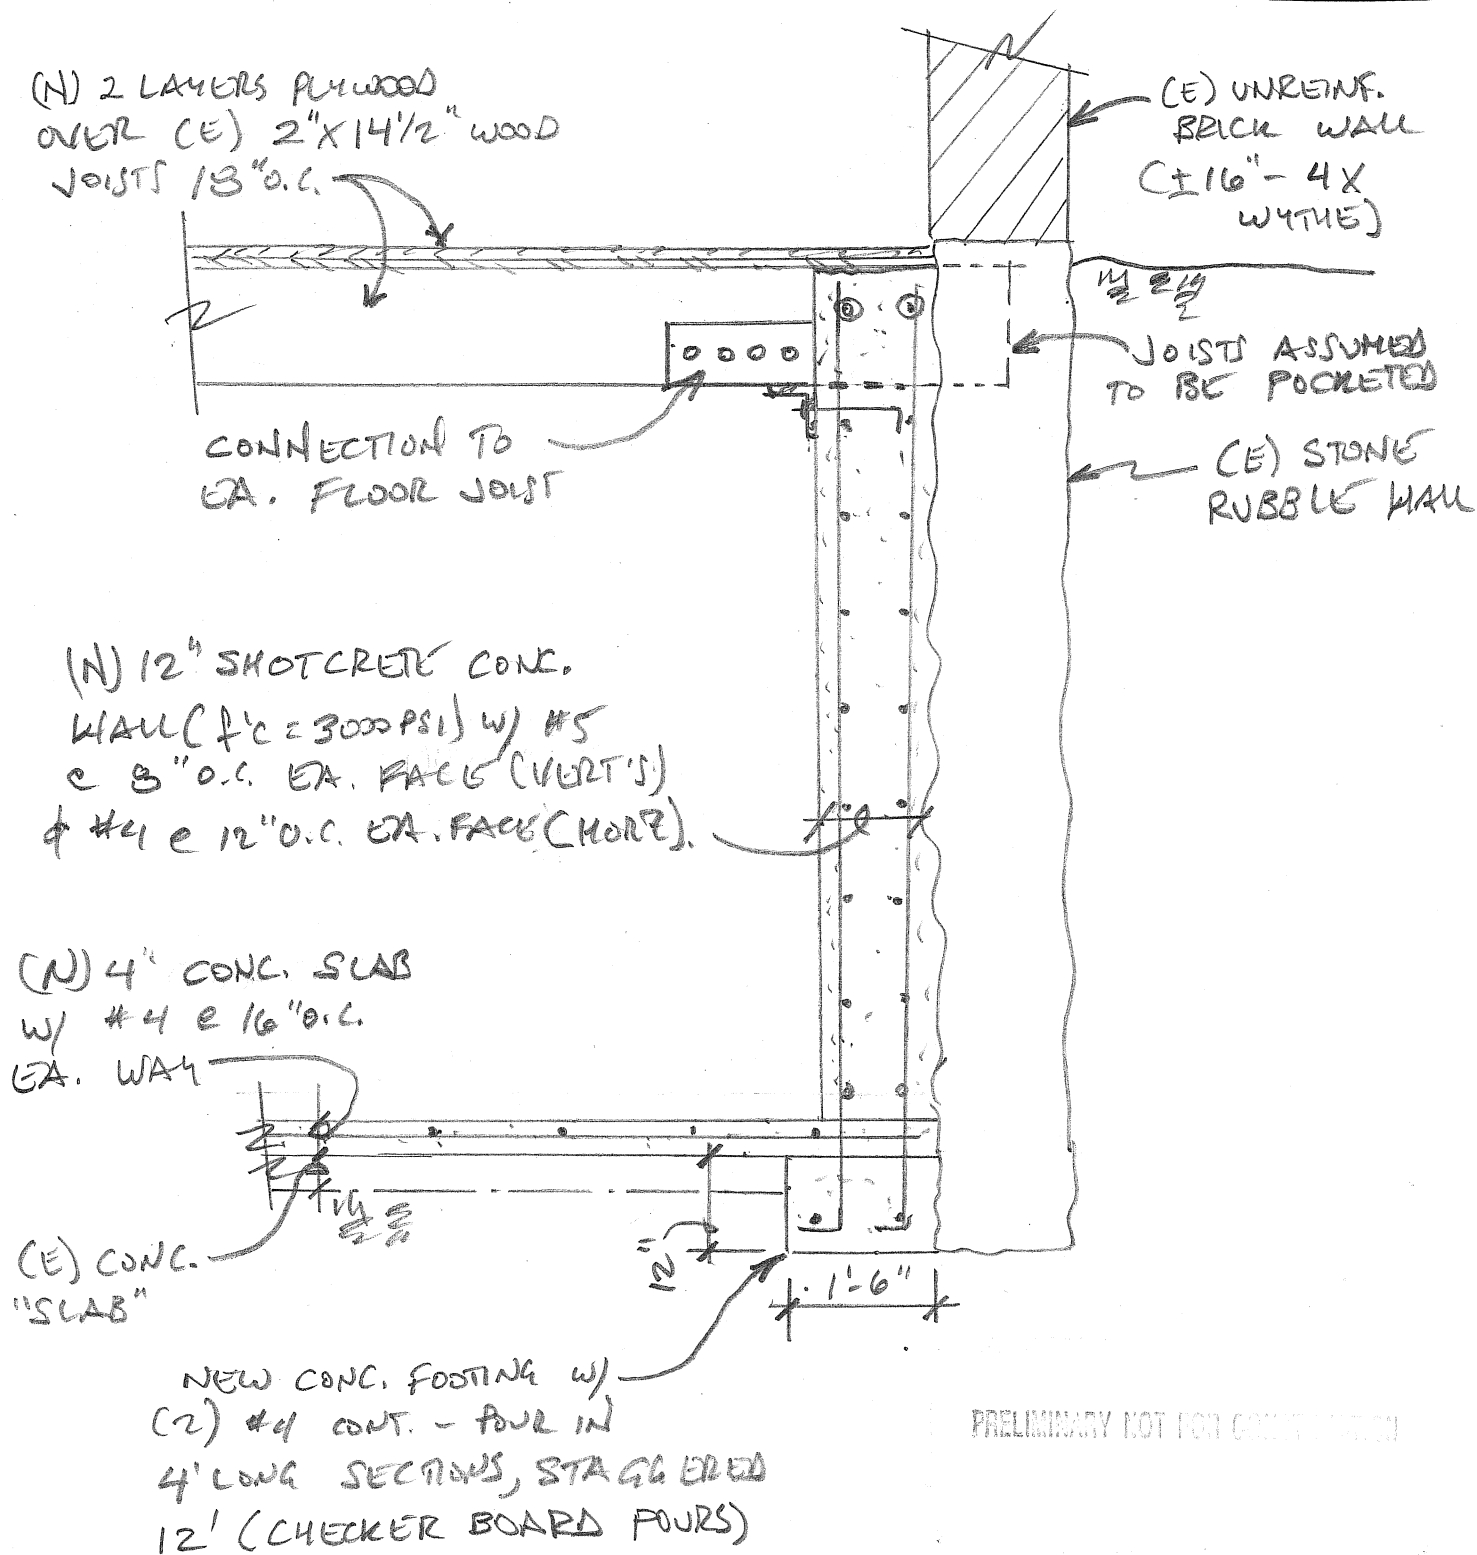 (N) 2 LAYERS PLYWOOD
OVER (E) 2"X14½" WOOD
JOISTS 18"O.C.
(E) UNREINF.
BRICK WALL
(±16"- 4X
WYTHE)
JOISTS ASSUMED
TO BE POCKETED
CONNECTION TO
EA. FLOOR JOIST
(E) STONE
RUBBLE WALL
(N) 12" SHOTCRETE CONC.
WALL (f'c = 3000PSI) W/ #5
@ 8"O.C. EA. FACE (VERT'S)
& #4 @ 12"O.C. EA. FACE (HORZ).
(N) 4" CONC. SLAB
W/ #4 @ 16"O.C.
EA. WAY
(E) CONC.
"SLAB"
12"
1'-6"
NEW CONC. FOOTING W/
(2) #4 CONT. - POUR IN
4' LONG SECTIONS, STAGGERED
12' (CHECKER BOARD POURS)
PRELIMINARY NOT FOR CONSTRUCTION